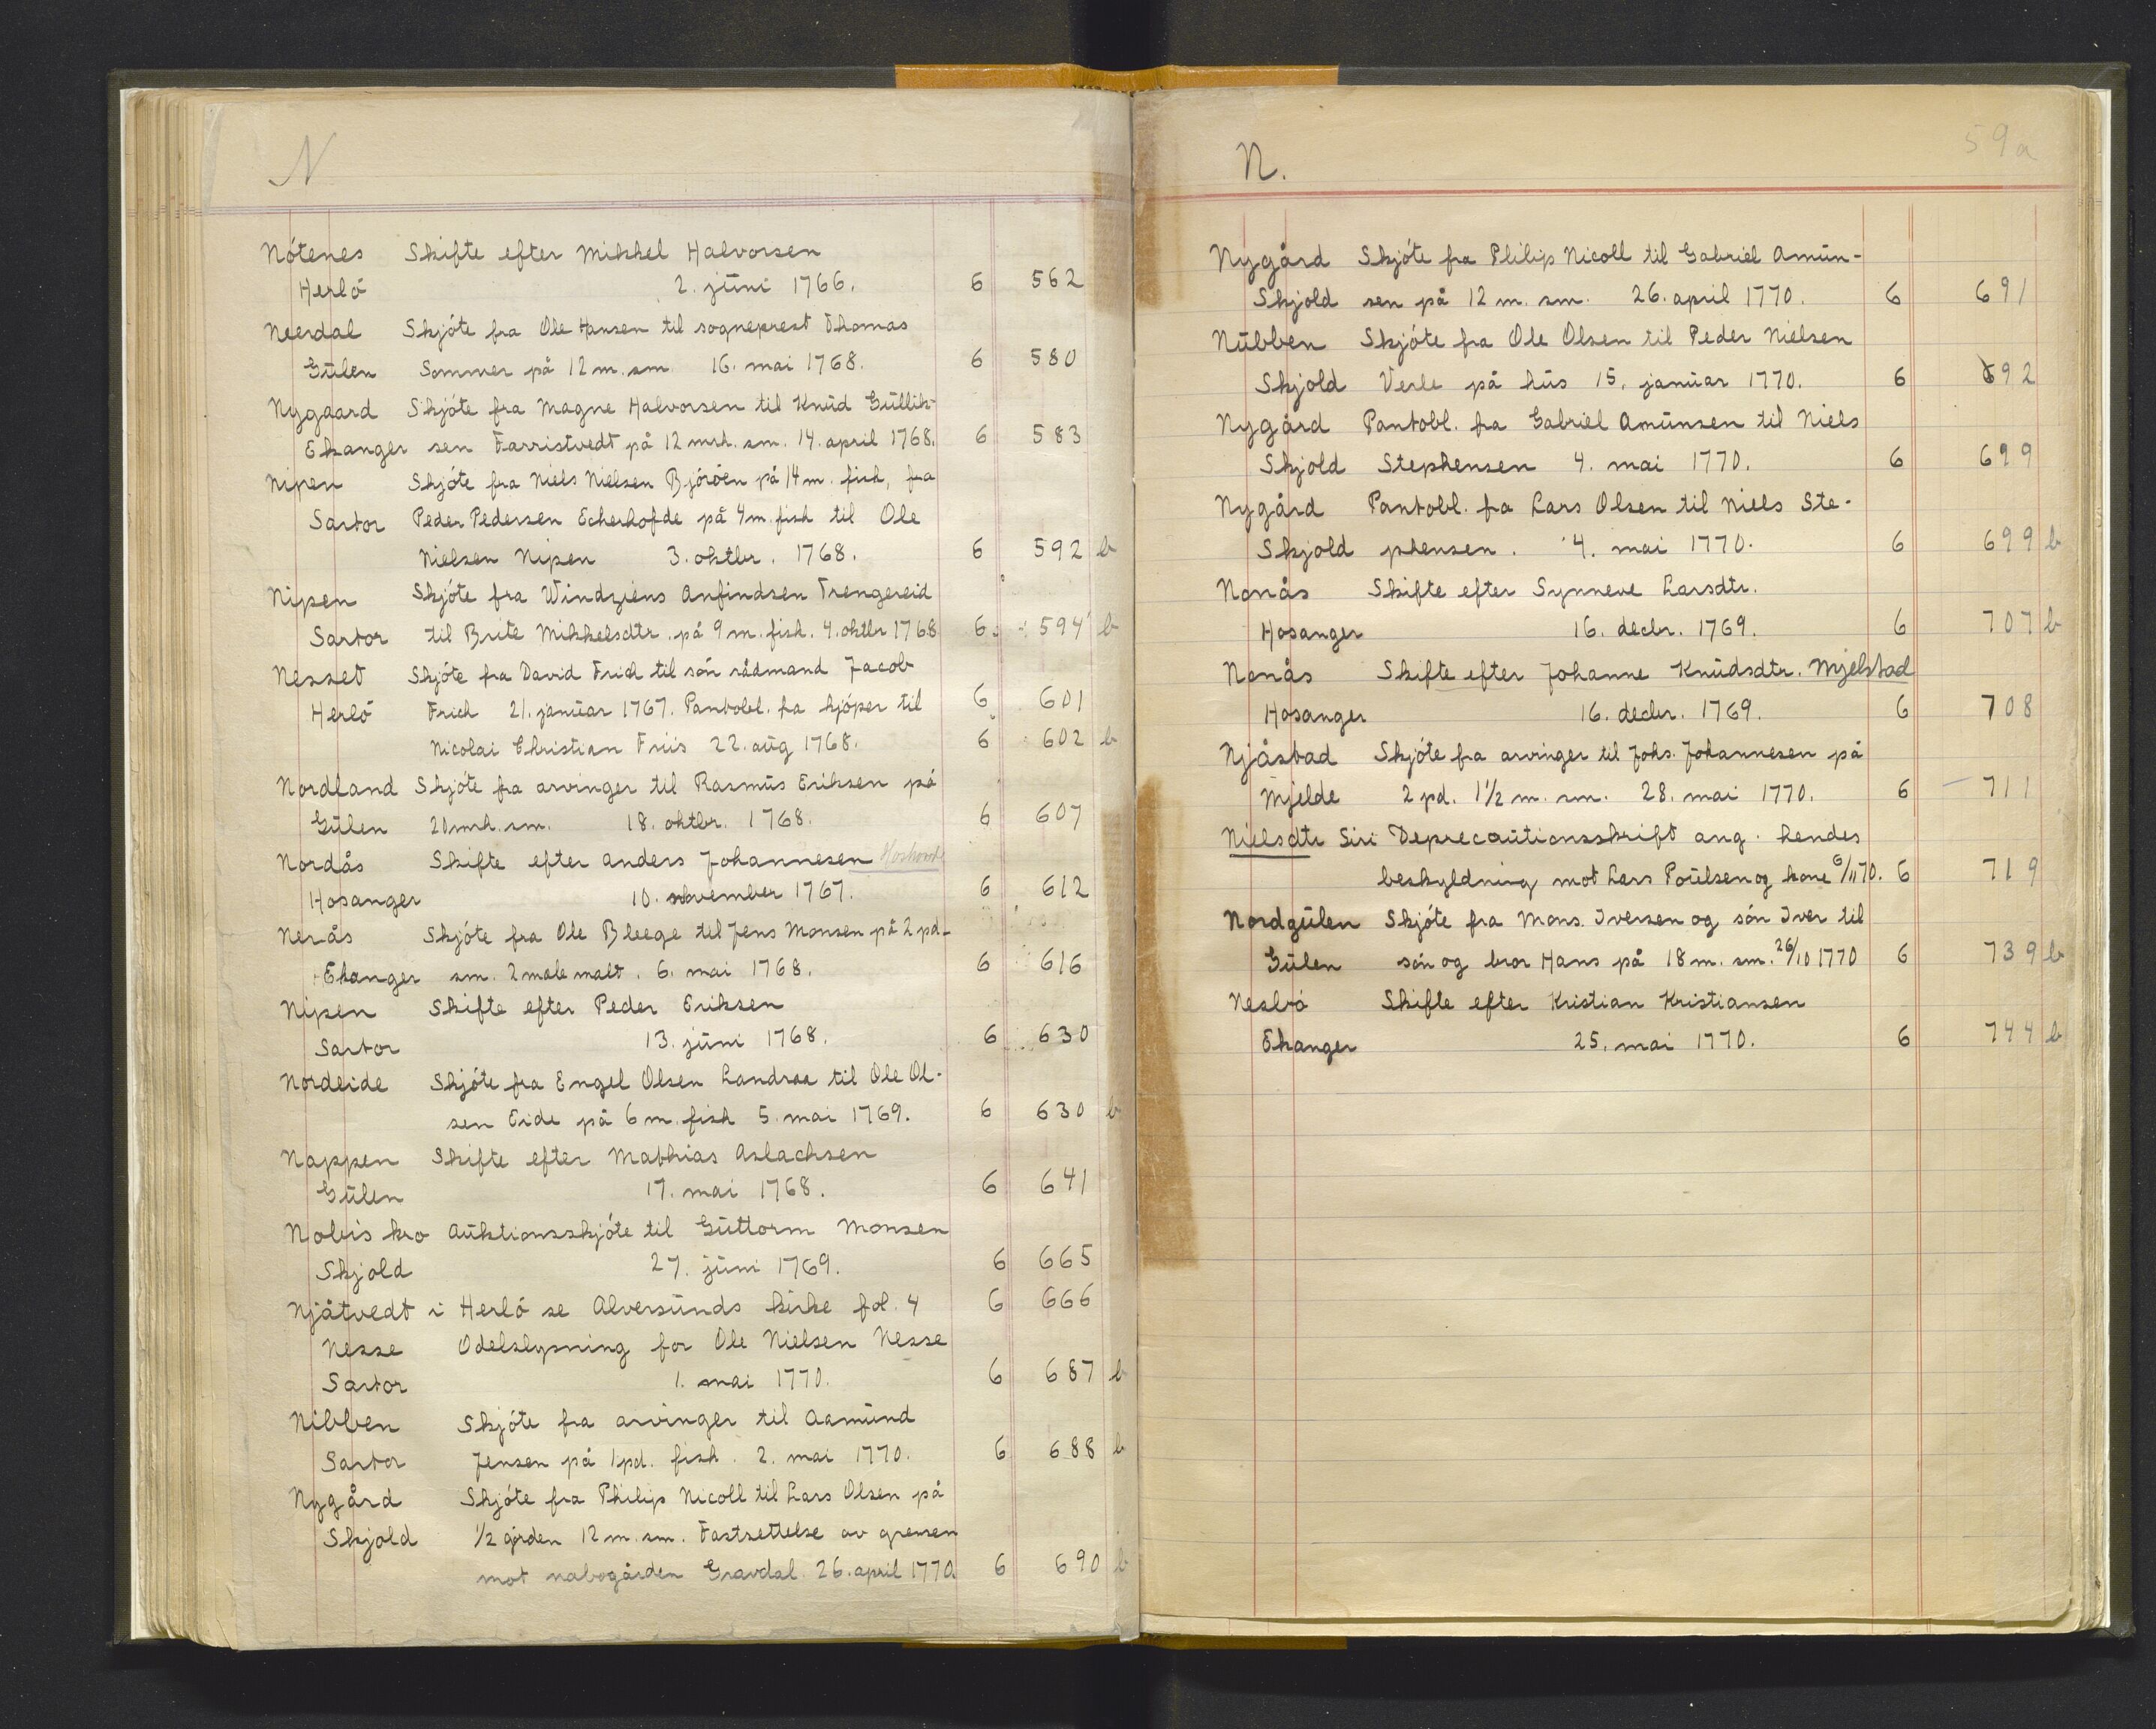 N
Nótenes Skifte efter Mikkel Halvorsen
Herló 2. jüni 1766. 6 562
Neerdal Skjóte fra Ole Hansen til sogneprest Thomas
Gülen Sommer på 12 m. sm. 16. mai 1768. 6 580
Nygaard Skjóte fra Magne Halvorsen til Knüd Güllik-
Ekanger sen Farristvedt på 12 mrk. sm. 14. april 1768. 6 583
Nipen Skjóte fra Niels Nielsen Bjóróen på 14 m. fisk, fra
Sartor Peder Pedersen Eckerhofde på 4 m. fisk til Ole
Nielsen Nipen 3. oktbr. 1768. 6 592 b
Nipen Skjóte fra Windziens Anfindsen Trengereid
Sartor til Brite Mikkelsdtr. på 9 m. fisk. 4. oktbr 1768 6 594 b
Nesset Skjóte fra David Frich til són rådmand Jacob
Herló Frich 21. janüar 1767. Pantobl. fra kjóper til 6 601
Nicolai Christian Friis 22. aüg 1768. 6 602 b
Nordland Skjóte fra arvinger til Rasmüs Eriksen på
Gülen 20 mrk. sm. 18. oktbr. 1768. 6 607
Nordås Skifte efter Anders Johannesen
Hosanger 10. november 1767. 6 612
Nerås Skjóte fra Ole Bleege til Jens Monsen på 2 pd.
Ekanger sm. 2 male malt. 6. mai 1768. 6 616
Nipen Skifte efter Peder Eriksen
Sartor 13. jüni 1768. 6 630
Nordeide Skjóte fra Engel Olsen Landraa til Ole Ol-
sen Eide på 6 m. fisk 5. mai 1769. 6 630 b
Nappen Skifte efter Mathias Aslachsen
Gülen 17. mai 1768. 6 641
Nobis kro Aüktionsskjóte til Güttorm Monsen
Skjold 27. jüni 1769. 6 665
Njåtvedt i Herló se Alversünds kirke fol. 4 6 666
Nesse Odelslysning for Ole Nielsen Nesse
Sartor 1. mai 1770. 6 687 b
Nibben Skjóte fra arvinger til Aamünd
Sartor Jensen på 1 pd. fisk. 2. mai 1770. 6 688 b
Nygård Skjóte fra Philip Nicoll til Lars Olsen på
Skjold 1/2 gården 12 m. sm. Fastsettelse av grensen
mot nabogården Gravdal. 26. april 1770. 6 690 b
59a
N.
Nygård Skjóte fra Philip Nicoll til Gabriel Amün-
Skjold sen på 12 m. sm. 26. april 1770. 6 691
Nübben Skjóte fra Ole Olsen til Peder Nielsen
Skjold Verle på hüs 15. janüar 1770. 6 692
Nygård Pantobl. fra Gabriel Amünsen til Niels
Skjold Stephensen 4. mai 1770. 6 699
Nygård Pantobl. fra Lars Olsen til Niels Ste-
Skjold phensen. 4. mai 1770. 6 699 b
Nonås Skifte efter Synneve Larsdtr.
Hosanger 16. decbr. 1769. 6 707 b
Nonås Skifte efter Johanne Knüdsdtr. Mjelstad
Hosanger 16. decbr. 1769. 6 708
Njåstad Skjóte fra arvinger til Johs. Johannesen på
Mjelde 2 pd. 1 1/2 m. sm. 28. mai 1770. 6 711
Nielsdtr Siri Deprecaütionsskrift ang. hendes
beskyldning mot Lars Poülsen og kone 6/11 70. 6 719
Nordgülen Skjóte fra Mons. Iversen og són Iver til
Gülen són og bror Hans på 18 m. sm. 26/10 1770 6 739 b
Nesbó Skifte efter Kristian Kristiansen
Ekanger 25. mai 1770. 6 744 b